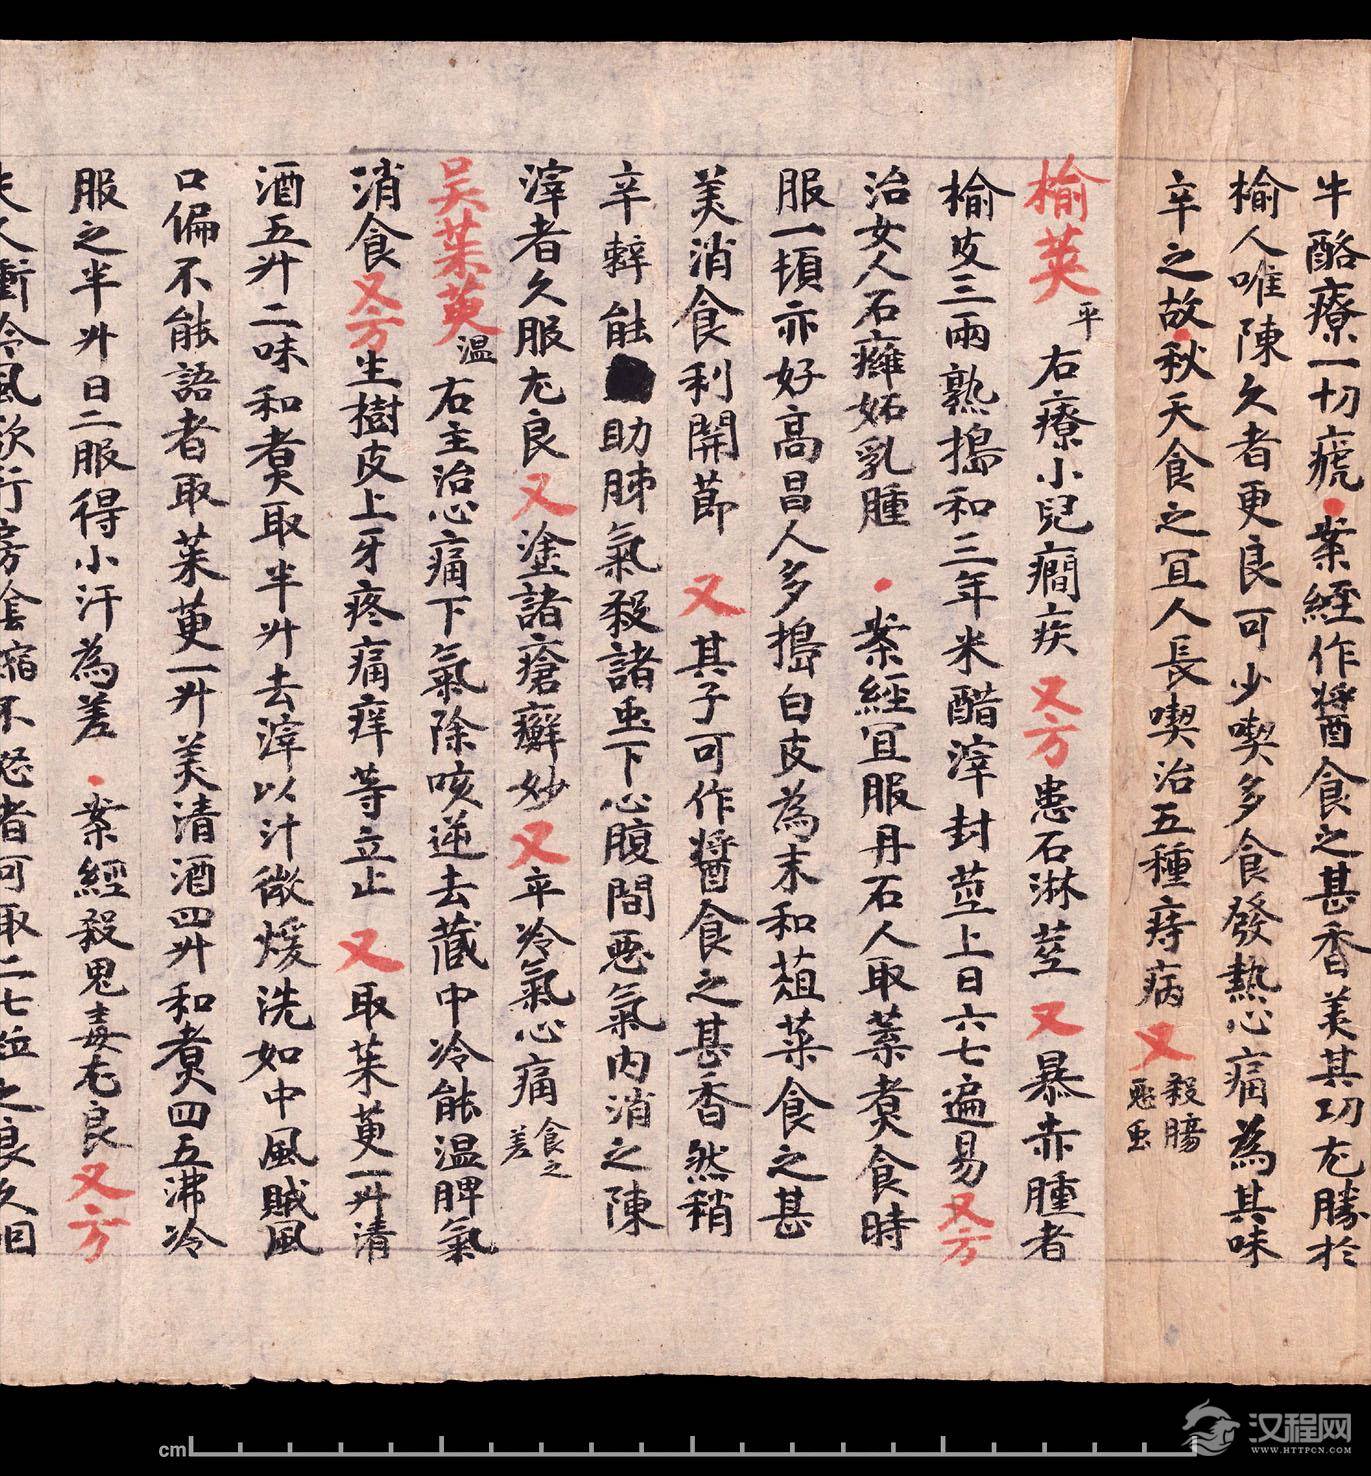 牛酪療一切瘧案經作醬食之甚香美其功尤勝於
榆人唯陳久者更良可少喫多食發熱心痛為其味
辛之故秋天食之宜人長喫治五種痔病又殺腸惡虫
榆莢平右療小兒癇疾又方患石淋莖又暴赤腫者
榆皮三兩熟搗和三年米醋滓封莖上日六七遍易又方
治女人石癰妬乳腫案經宜服丹石人取葉煮食時
服一頓亦好高昌人多搗白皮為末和葅菜食之甚
美消食利開節又其子可作醬食之甚香然稍
辛辢能助肺氣殺諸虫下心腹間惡氣內消之陳
滓者久服尤良又塗諸瘡癬妙又卒冷氣心痛食之差
吳茱萸温右主治心痛下氣除咳逆去藏中冷能温脾氣
消食又方生樹皮上牙疼痛痒等立止又取茱萸一升清
酒五升二味和煮取半升去滓以汁微煖洗如中風賊風
口偏不能語者取茱萸一升美清酒四升和煮四五沸冷
服之半升日二服得小汗為差案經殺鬼毒尤良又方
夫人衝冷風欲行房陰縮不怒者可取二七粒之良久咽
汉程网
WWW.HTTPCN.COM
cm